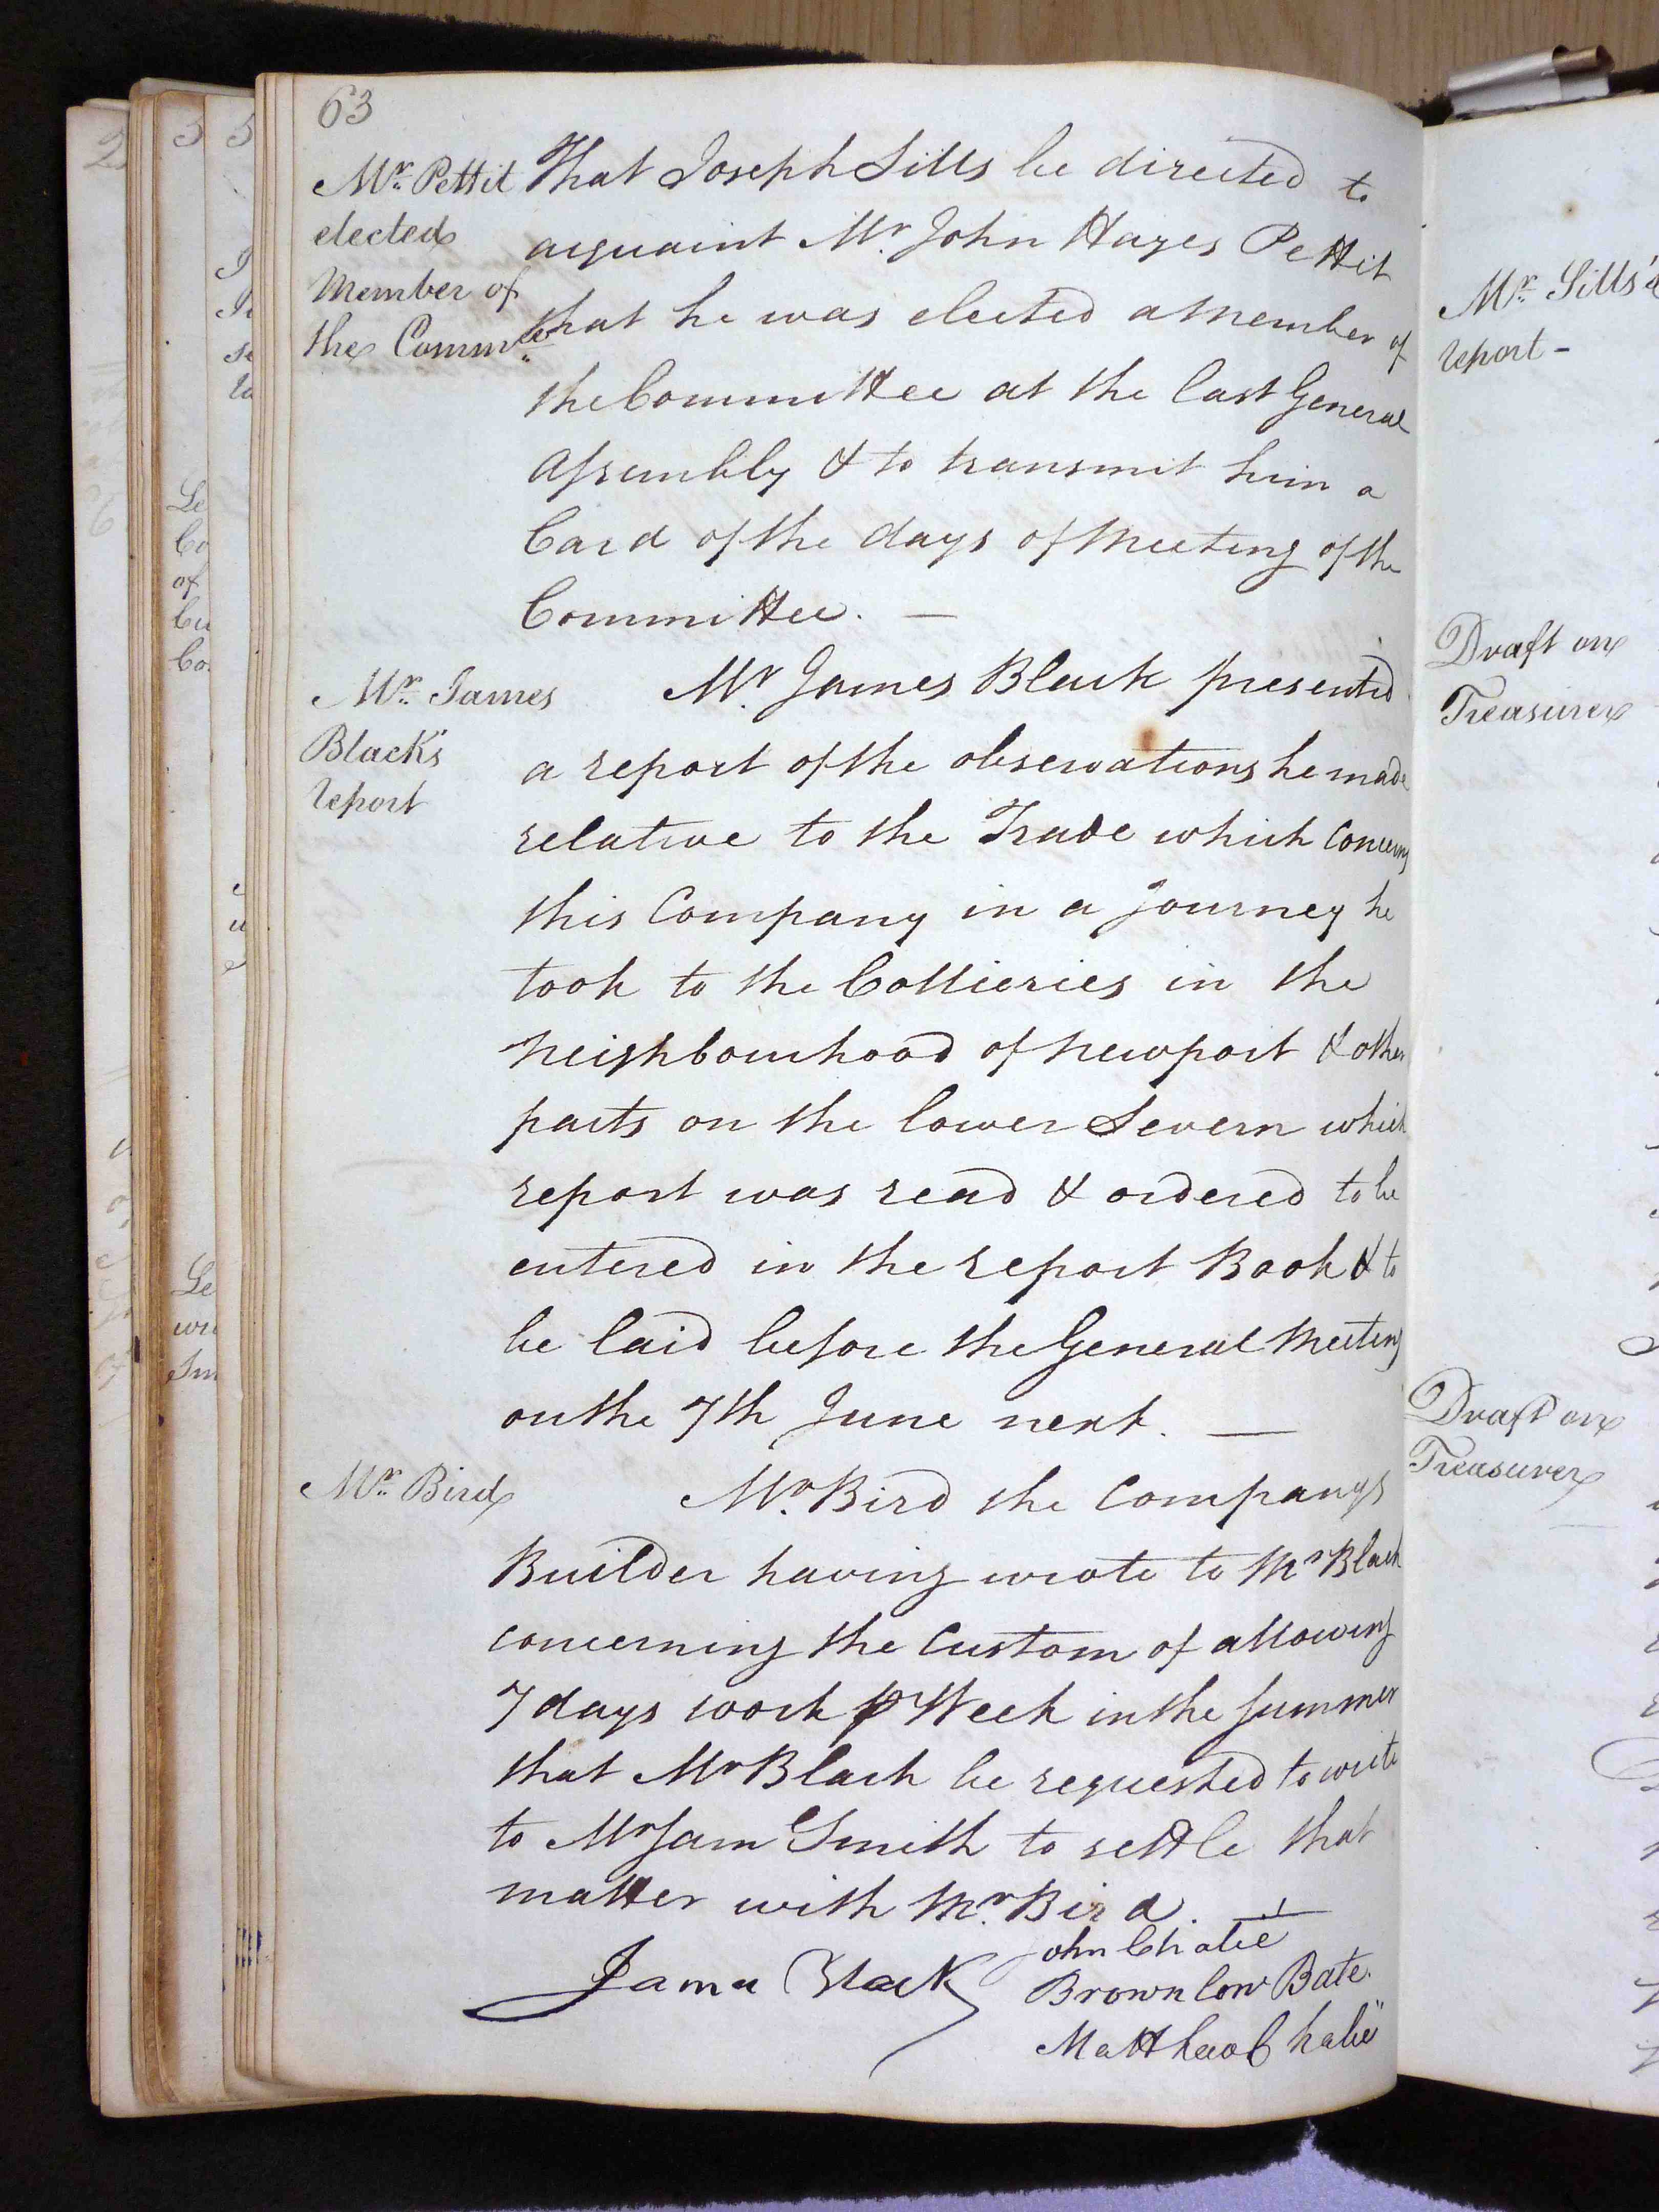 63
Mr. Pettit
elected
Member of
the Commee
That Joseph Sills be directed to
acquaint Mr. John Hayes Pettit
that he was elected a Member of
the Committee at the last General
Assembly & to transmit him a
Card of the days of Meeting of the
Committee. —
Mr. James
Black's
report
Mr. James Black presented
a report of the observations he made
relative to the Trade which concerns
this Company in a journey he
took to the Collieries in the
Neighbourhood of Newport & other
parts on the lower Severn which
report was read & ordered to be
entered in the report Book & to
be laid before the General Meeting
on the 7th June next. —
Mr. Bird
Mr. Bird the Companys
Builder having wrote to Mr Black
concerning the Custom of allowing
7 days work p Week in the Summer
that Mr Black be requested to write
to Mr Sam Smith to settle that
matter with Mr. Bird. —
James Black
John Chalié
Brownlow Bate.
Matthew Chalié
Mr. Sills's
report -
Draft on
Treasurer
Draft on
Treasurer